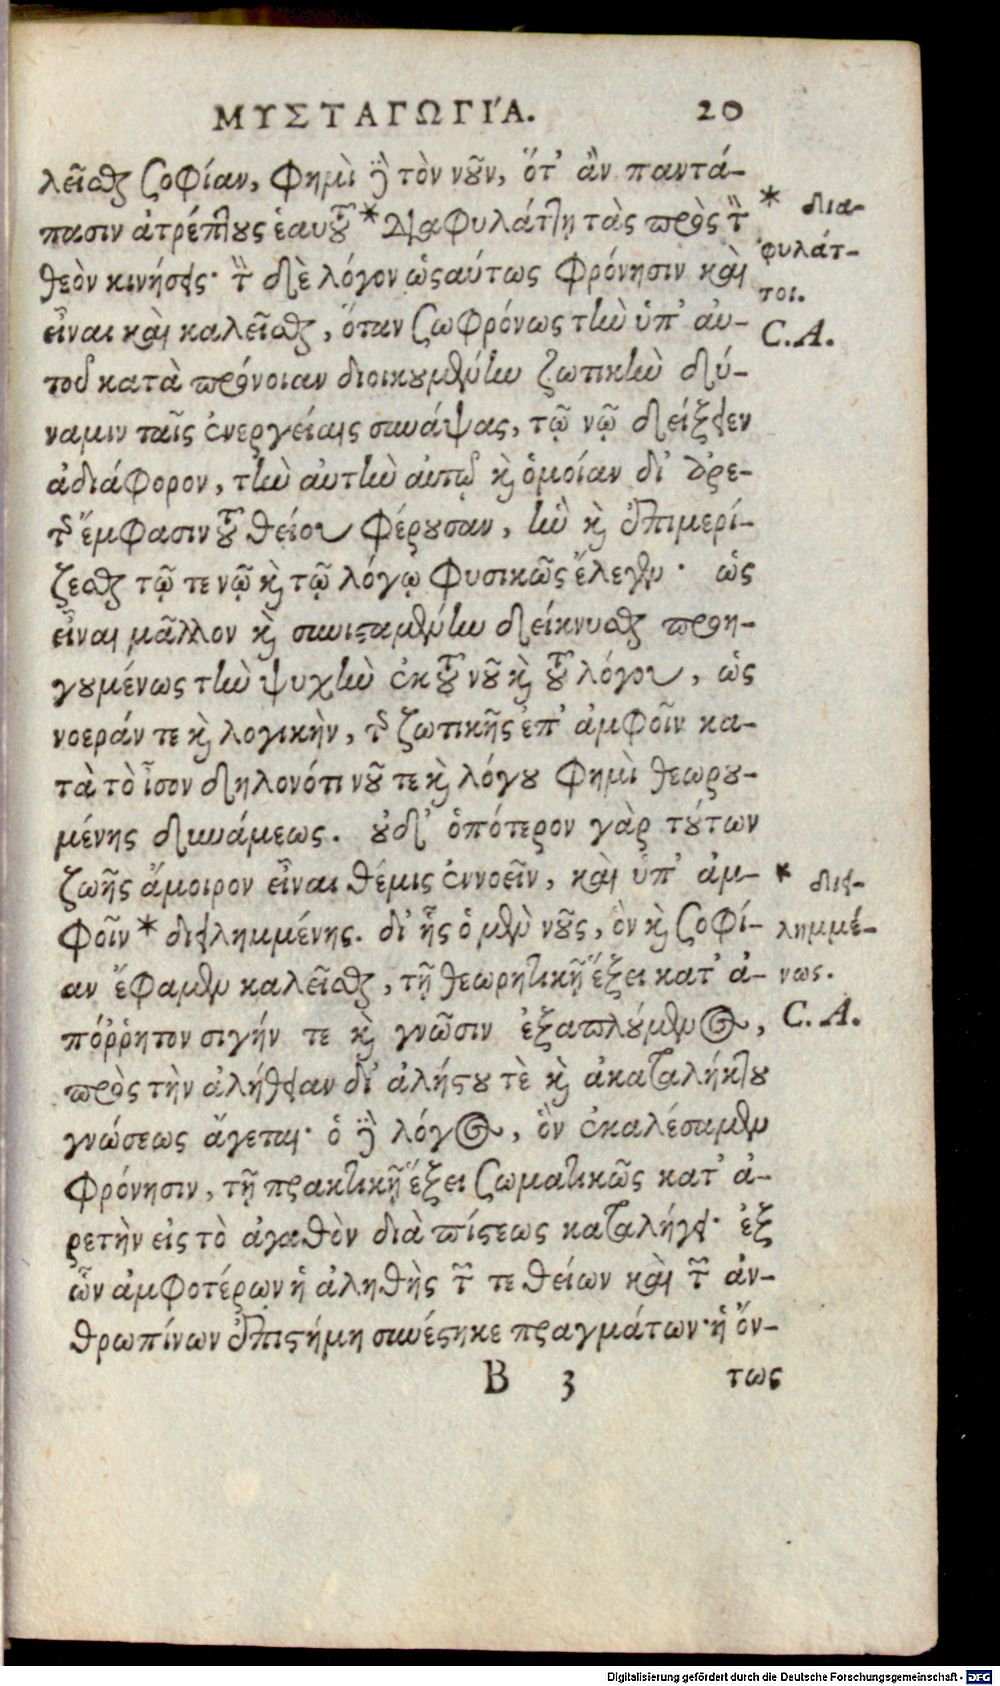 ΜΥΣΤΑΓΩΓΊΑ. 20
λεῖσθαι σοφίαν, φημὶ δὴ τὸν νοῦν, ὅτ' ἂν παντά-
πασιν ἀτρέπτους ἑαυτοῦ * διαφυλάττῃ τὰς πρὸς τὸν
θεὸν κινήσεις· τὸν δὲ λόγον ὡςαύτως φρόνησιν καὶ
εἶναι καὶ καλεῖσθαι, ὅταν σωφρόνως τὴν ὑπ' αὐ-
τοῦ κατὰ πρόνοιαν διοικουμένην ζωτικὴν δύ-
ναμιν ταῖς ἐνεργείαις συνάψας, τῷ νῷ δείξειεν
ἀδιάφορον, τὴν αὐτὴν αὐτῷ καὶ ὁμοίαν δι' ἀρε-
τῆς ἔμφασιν τοῦ θείου φέρουσαν, ἣν καὶ ἐπιμερί-
ζεσθαι τῷ τε νῷ καὶ τῷ λόγῳ φυσικῶς ἔλεγεν· ὡς
εἶναι μᾶλλον καὶ συνισταμένην δείκνυσθαι προη-
γουμένως τὴν ψυχὴν ἐκ τοῦ νοῦ καὶ τοῦ λόγου, ὡς
νοεράν τε καὶ λογικὴν, τῆς ζωτικῆς ἐπ' ἀμφοῖν κα-
τὰ τὸ ἶσον δηλονότι νοῦ τε καὶ λόγου φημὶ θεωρου-
μένης δυνάμεως. οὐδ' ὁπότερον γὰρ τούτων
ζωῆς ἄμοιρον εἶναι θέμις ἐννοεῖν, καὶ ὑπ' ἀμ-
φοῖν * διειλημμένης. δι' ἧς ὁ μὲν νοῦς, ὃν καὶ σοφί-
αν ἔφαμεν καλεῖσθαι, τῇ θεωρητικῇ ἕξει κατ' ἀ-
πόῤῥητον σιγήν τε καὶ γνῶσιν ἐξαπλούμενος,
πρὸς τὴν ἀλήθειαν δι' ἀλήστου τὲ καὶ ἀκαταλήκτου
γνώσεως ἄγεται· ὁ δὴ λόγος, ὃν ἐκαλέσαμεν
φρόνησιν, τῇ πρακτικῇ ἕξει σωματικῶς κατ' ἀ-
ρετὴν εἰς τὸ ἀγαθὸν διὰ πίστεως καταλήγει· ἐξ
ὧν ἀμφοτέρων ἡ ἀληθὴς τῶν τε θείων καὶ τῶν ἀν-
θρωπίνων ἐπιστήμη συνέστηκε πραγμάτων· ἡ ὄν-
B 3 τως
* δια-
φυλάτ-
τοι.
C. A.
* διει-
λημμέ-
νως.
C. A.
Digitalisierung gefördert durch die Deutsche Forschungsgemeinschaft - DFG